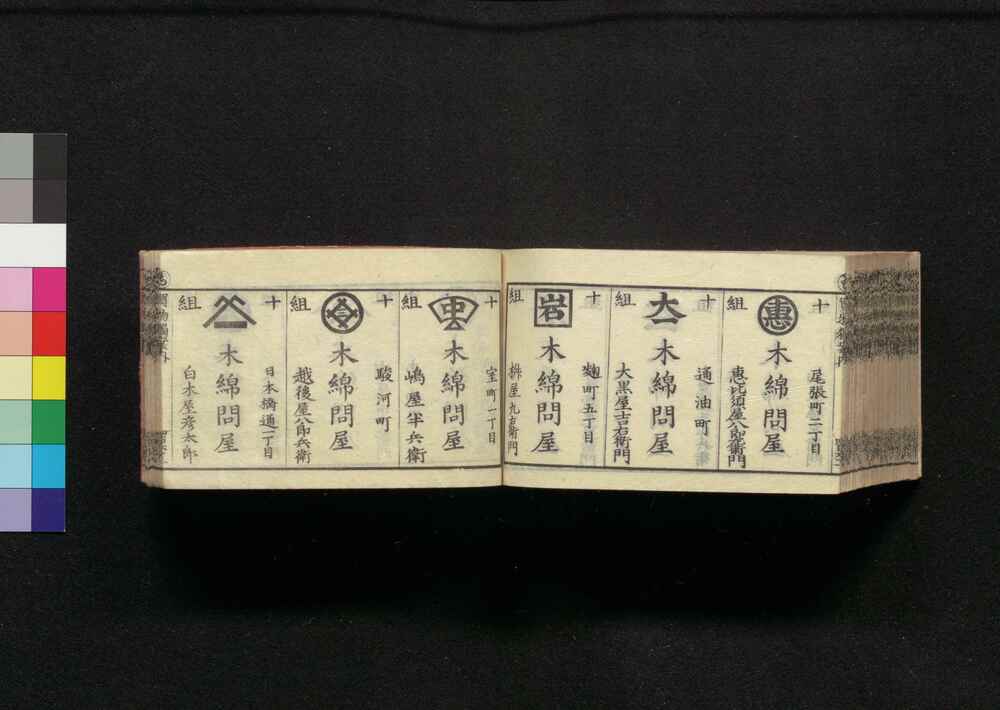 十
組
惠
尾張町二丁目
木綿問屋
恵比須屋八郎左衛門
十
組
大一
通油町
木綿問屋
大黒屋吉右衛門
十
組
岩
麹町五丁目
木綿問屋
枡屋九右衛門
十
組
室町一丁目
木綿問屋
嶋屋半兵衛
十
組
駿河町
木綿問屋
越後屋八郎兵衛
十
組
日本橋通一丁目
木綿問屋
白木屋彦太郎